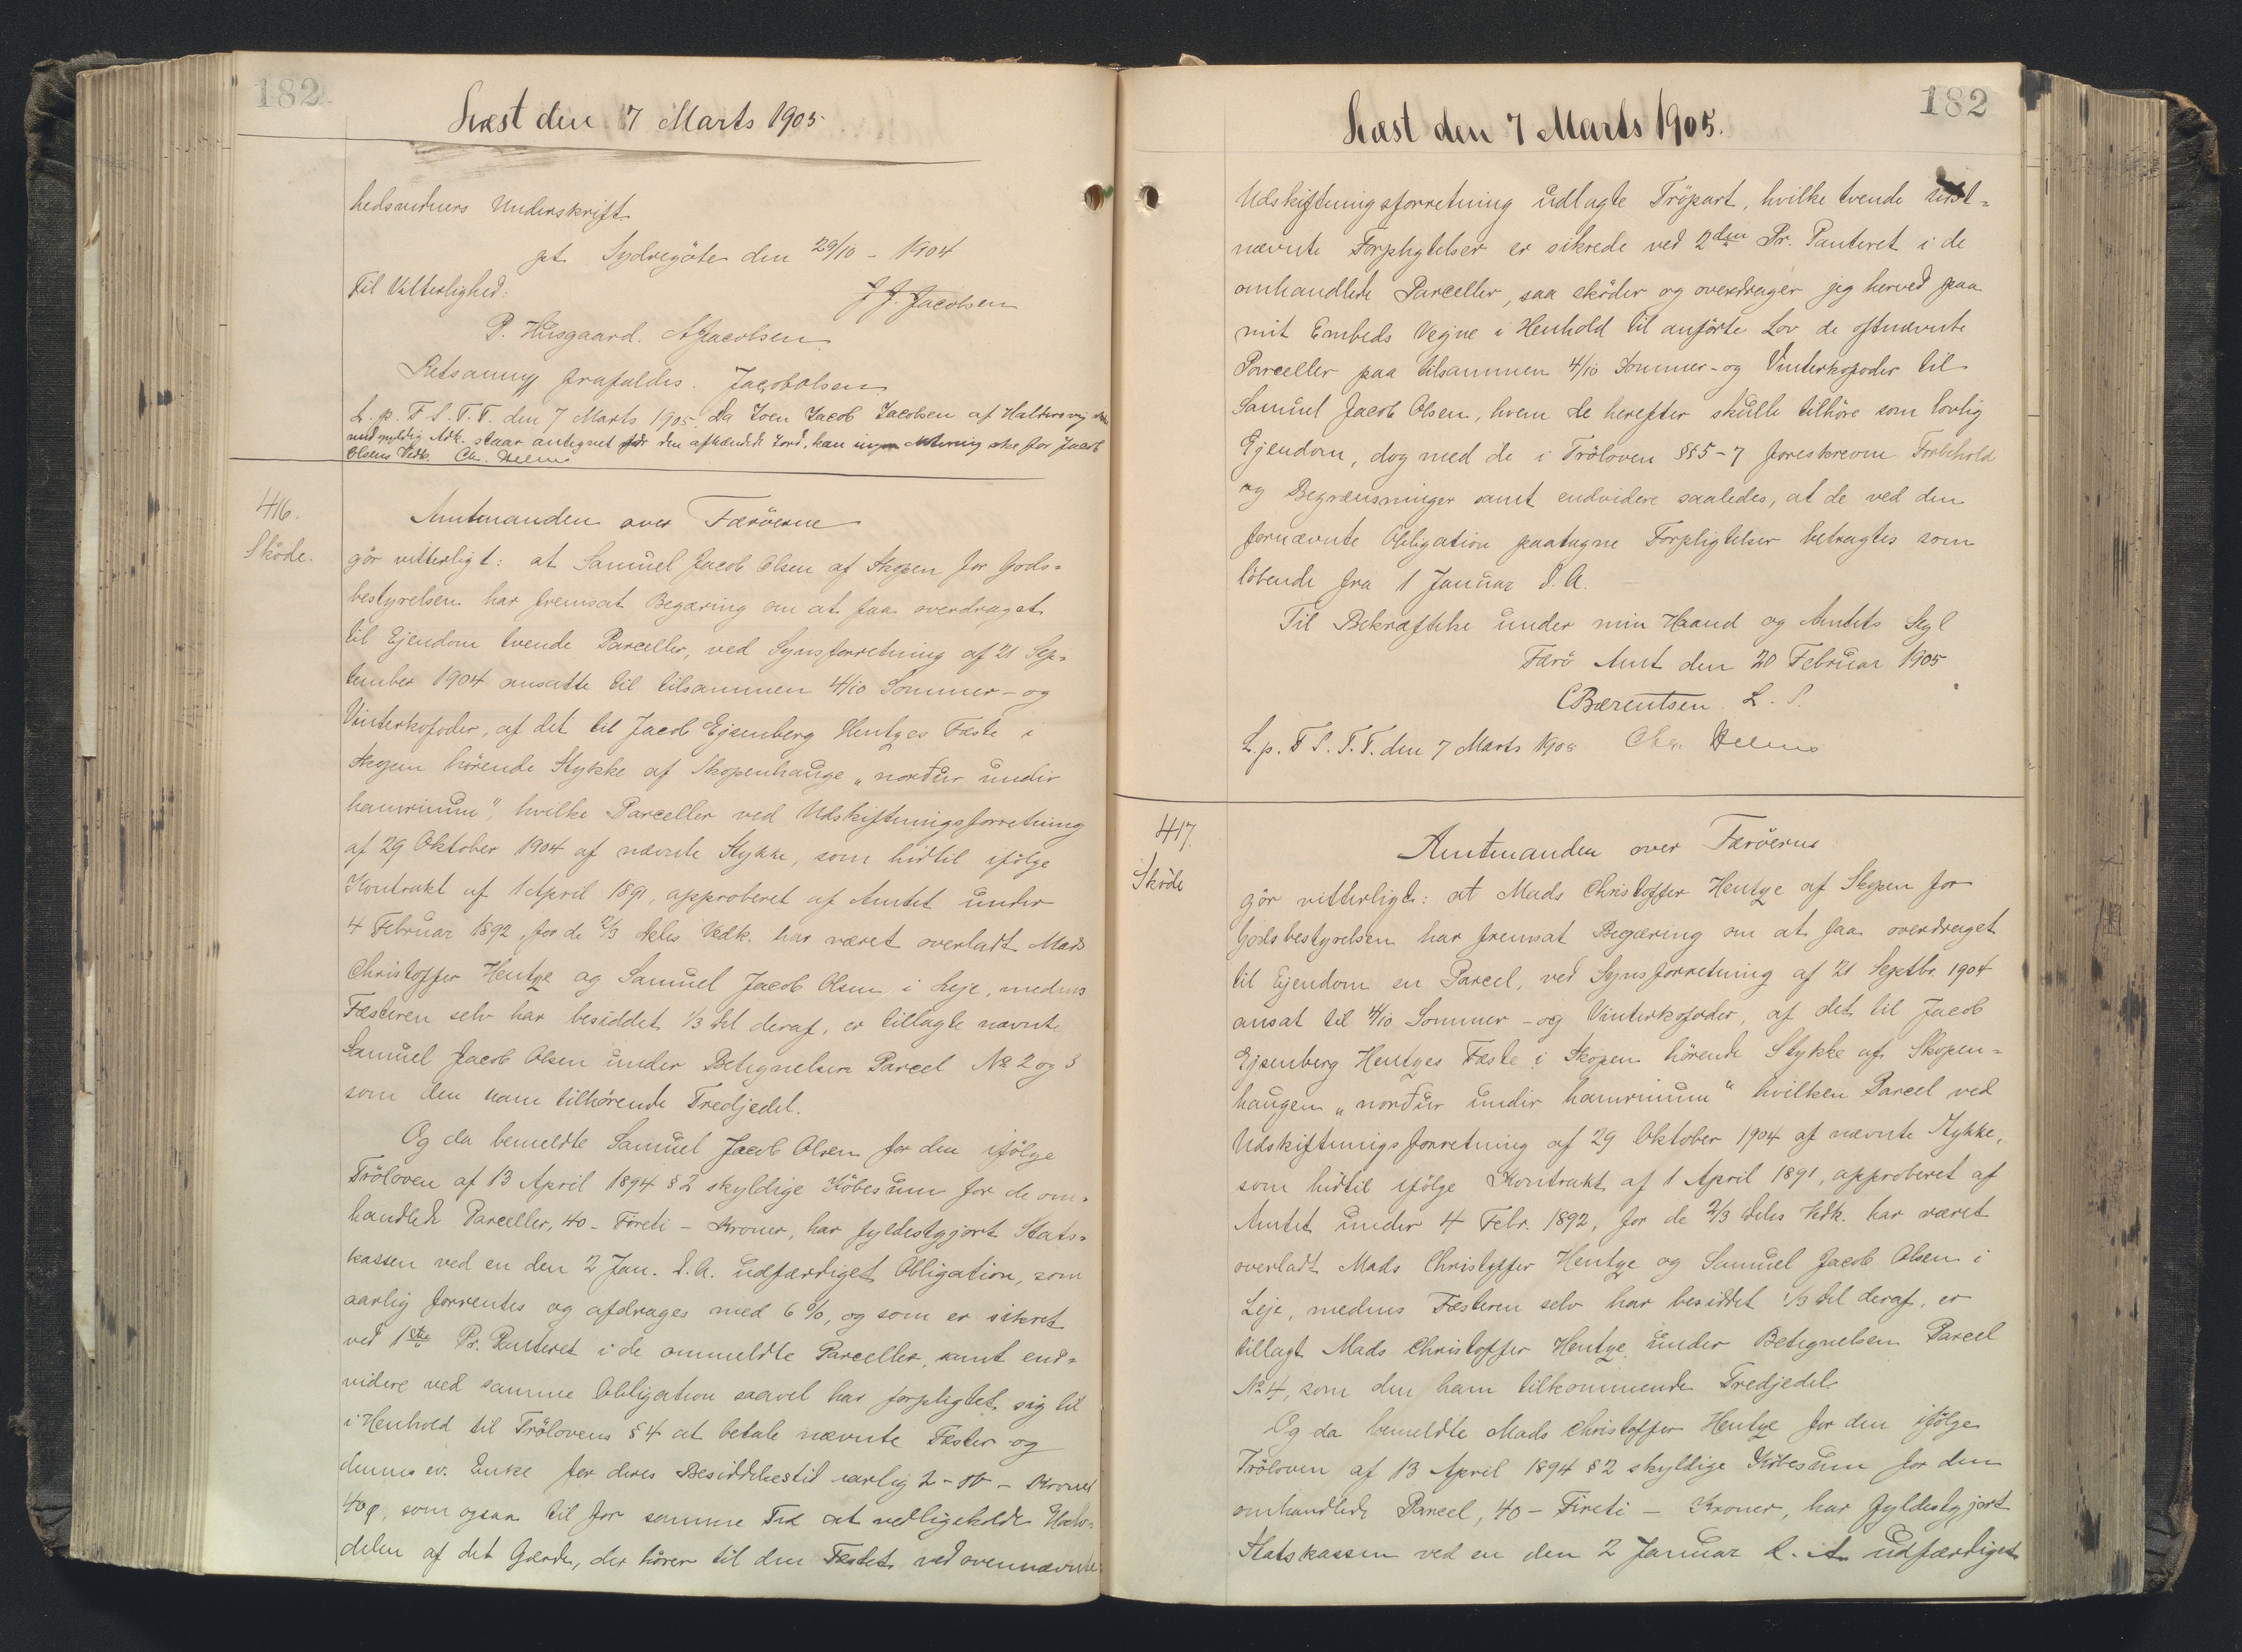 182
Læst den 7 Marts 1905
hedsvidners Underskrift
pt. Sydregöte den 29/10 - 1904
Til Vitterlighed: J. J. Jacobsen
P. Husgaard. A Jacobsen
Retsanm frafaldes. Jacob Olsen
L. p. F. S. T. T. den 7 Marts 1905. Da Joen Jacob Jacobsen af Haldersvig
med gyldig Adk. staar antegnet for den afhændede Jord, kan ingen Notering ske for Jacob
Olsens Vedk. Chr. Helms
416.
Sköde.
Amtmanden over Færöerne
gör vitterligt: at Samuel Jacob Olsen af Skopen for Gods-
bestyrelsen har fremsat Begæring om at faa overdraget
til Ejendom tvende Parceller, ved Synsforretning af 21 Sep-
tember 1904 ansatte til tilsammen 4/10 Sommer- og
Vinterkofoder, af det til Jacob Ejsenberg Hentzes Fæste i
Skopen hörende Stykke af Skopenhauge "norður undir
hamrinum", hvilke Parceller ved Udskiftningsforretning
af 29 Oktober 1904 af nævnte Stykke, som hidtil ifölge
Kontrakt af 1 April 1891, approberet af Amtet under
4 Februar 1892, for de 2/3 Deles Vedk. har været overladt Mads
Christoffer Hentze og Samuel Jacob Olsen i Leje, medens
Fæsteren selv har besiddet 1/3 Del deraf, er tillagte nævnte
Samuel Jacob Olsen under Betegnelsen Parcel № 2 og 3
som den ham tilhörende Tredjedel.
Og da bemeldte Samuel Jacob Olsen for den ifölge
Tröloven af 13 April 1894 § 2 skyldige Köbesum for de om-
handlede Parceller, 40 - Fireti - Kroner, har fyldestgjort Stats-
kassen ved en den 2 Jan. d. A. udfærdiget Obligation, som
aarlig forrentes og afdrages med 6 %, og som er sikret
ved 1ste Pr. Panteret i de ommeldte Parceller, samt end-
videre ved samme Obligation saavel har forpligtet sig til
i Henhold til Trölovens § 4 at betale nævnte Fæster og
dennes ev. Enke for deres Besiddelsestid aarlig 2 - to - Kroner
40 ø, som ogsaa til for samme Tid at vedligeholde Halv-
delen af det Gærde, der hörer til den Fæstet ved ovennævnte
182
Læst den 7 Marts 1905.
Udskiftningsforretning udlagte Tröpart, hvilke tvende sidst-
nævnte Forpligtelser er sikrede ved 2den Pr. Panteret i de
omhandlede Parceller, saa sköder og overdrager jeg herved paa
mit Embeds Vegne i Henhold til anförte Lov de oftnævnte
Parceller paa tilsammen 4/10 Sommer- og Vinterkofoder til
Samuel Jacob Olsen, hvem de herefter skulle tilhöre som lovlig
Ejendom, dog med de i Tröloven §§ 5-7 foreskrevne Forbehold
og Begrænsninger samt endvidere saaledes, at de ved den
fornævnte Obligation paatagne Forpligtelser betragtes som
löbende fra 1 Januar d. A. -
Til Bekræftelse under min Haand og Amtets Segl
Færö Amt den 20 Februar 1905
C Bærentsen. L. S.
L. p. F S. T. T. den 7 Marts 1905 Chr. Helms
417.
Sköde
Amtmanden over Færöerne
gör vitterligt: at Mads Christoffer Hentze af Skopen for
Godsbestyrelsen har fremsat Begæring om at faa overdraget
til Ejendom en Parcel, ved Synsforretning af 21 Septbr. 1904
ansat til 4/10 Sommer- og Vinterkofoder, af det til Jacob
Ejsenberg Hentzes Fæste i Skopen hörende Stykke af Skopen-
haugen "norður undir hamrinum" hvilken Parcel ved
Udskiftningsforretning af 29 Oktober 1904 af nævnte Stykke,
som hidtil ifölge Kontrakt af 1 April 1891, approberet af
Amtet under 4 Febr. 1892, for de 2/3 Deles Vedk. har været
overladt Mads Christoffer Hentze og Samuel Jacob Olsen i
Leje, medens Fæsteren selv har besiddet 1/3 Del deraf, er
tillagt Mads Christoffer Hentze under Betegnelsen Parcel
№ 4, som den ham tilkommende Tredjedel
Og da bemeldte Mads Christoffer Hentze for den ifölge
Tröloven af 13 April 1894 § 2 skyldige Köbesum for den
omhandlede Parcel, 40 - Fireti - Kroner, har fyldestgjort
Statskassen ved en den 2 Januar d. A. udfærdiget